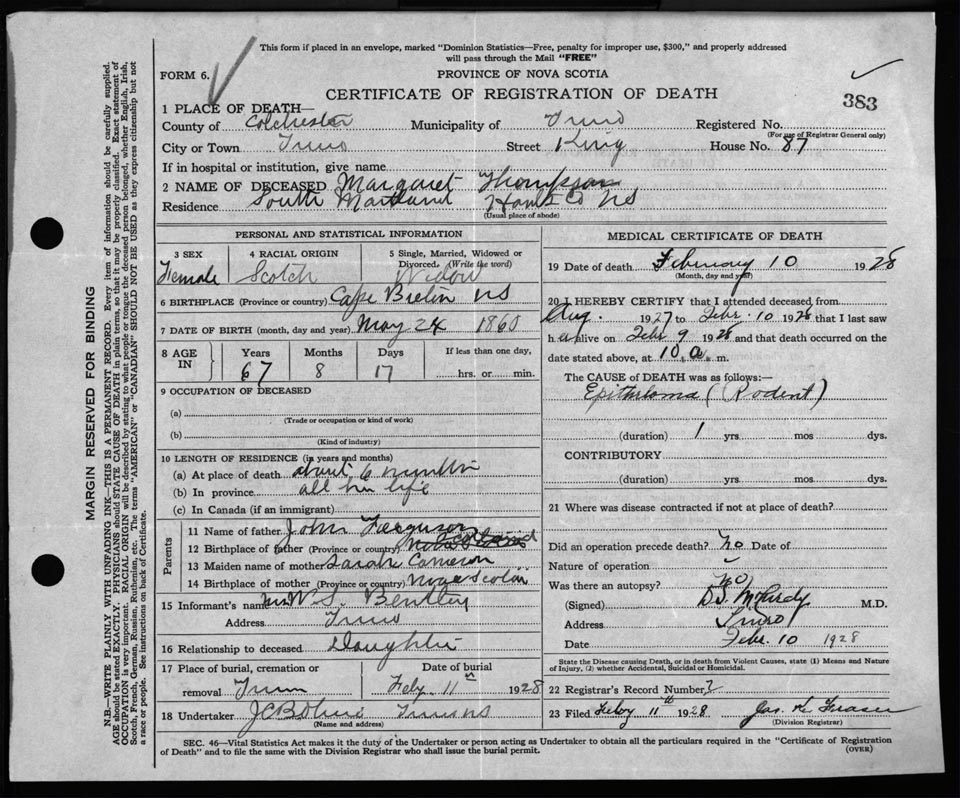 This form if placed in an envelope, marked "Dominion Statistics—Free, penalty for improper use, $300," and properly addressed
will pass through the Mail "FREE"
FORM 6.
PROVINCE OF NOVA SCOTIA
CERTIFICATE OF REGISTRATION OF DEATH
383
1 PLACE OF DEATH—
County of Colchester Municipality of Truro Registered No.
(For use of Registrar General only)
City or Town Truro Street King House No. 87
If in hospital or institution, give name
2 NAME OF DECEASED Margaret Thompson
Residence South Maitland Hants Co NS
(Usual place of abode)
PERSONAL AND STATISTICAL INFORMATION
3 SEX 4 RACIAL ORIGIN 5 Single, Married, Widowed or
Divorced. (Write the word)
Female Scotch Widow
6 BIRTHPLACE (Province or country) Cape Breton NS
7 DATE OF BIRTH (month, day and year) May 24 1860
8 AGE IN Years Months Days If less than one day,
67 8 17 hrs. or min.
9 OCCUPATION OF DECEASED
(a)
(Trade or occupation or kind of work)
(b)
(Kind of industry)
10 LENGTH OF RESIDENCE (in years and months)
(a) At place of death about 6 months
(b) In province all her life
(c) In Canada (if an immigrant)
Parents
11 Name of father John Ferguson
12 Birthplace of father (Province or country) Scotland
13 Maiden name of mother Sarah Cameron
14 Birthplace of mother (Province or country) Nova Scotia
15 Informant's name Mrs W. S. Bentley
Address Truro
16 Relationship to deceased Daughter
17 Place of burial, cremation or Date of burial
removal Truro Feby. 11th 1928
18 Undertaker Truro NS
(Name and address)
MEDICAL CERTIFICATE OF DEATH
19 Date of death February 10 1928
(Month, day and year)
20 I HEREBY CERTIFY that I attended deceased from
Aug. 1927 to Febr. 10 1928 that I last saw
h alive on Febr 9 1928 and that death occurred on the
date stated above, at 10 a. m.
The CAUSE of DEATH was as follows:—
Epithelioma (Rodent)
(duration) 1 yrs. mos dys.
CONTRIBUTORY
(duration) yrs. mos. dys.
21 Where was disease contracted if not at place of death?
Did an operation precede death? no Date of
Nature of operation
Was there an autopsy? no
(Signed) M.D.
Address Truro
Date Febr. 10 1928
State the Disease causing Death, or in death from Violent Causes, state (1) Means and Nature
of Injury, (2) whether Accidental, Suicidal or Homicidal.
22 Registrar's Record Number
23 Filed Feby 11th 1928 Jas. K. Fraser
(Division Registrar)
SEC. 46—Vital Statistics Act makes it the duty of the Undertaker or person acting as Undertaker to obtain all the particulars required in the "Certificate of Registration
of Death" and to file the same with the Division Registrar who shall issue the burial permit.
(OVER)
MARGIN RESERVED FOR BINDING
N.B.—WRITE PLAINLY WITH UNFADING INK—THIS IS A PERMANENT RECORD. Every item of information should be carefully supplied.
AGE should be stated EXACTLY. PHYSICIANS should STATE CAUSE OF DEATH in plain terms, so that it may be properly classified. Exact statement of
OCCUPATION is very important. RACIAL ORIGIN will be described by stating to what people or tongue the deceased person belonged, whether English, Irish,
Scotch, French, German, Russian, Ruthenian, etc. The terms "AMERICAN" or "CANADIAN" SHOULD NOT BE USED as they express citizenship but not
a race or people. See instructions on back of Certificate.